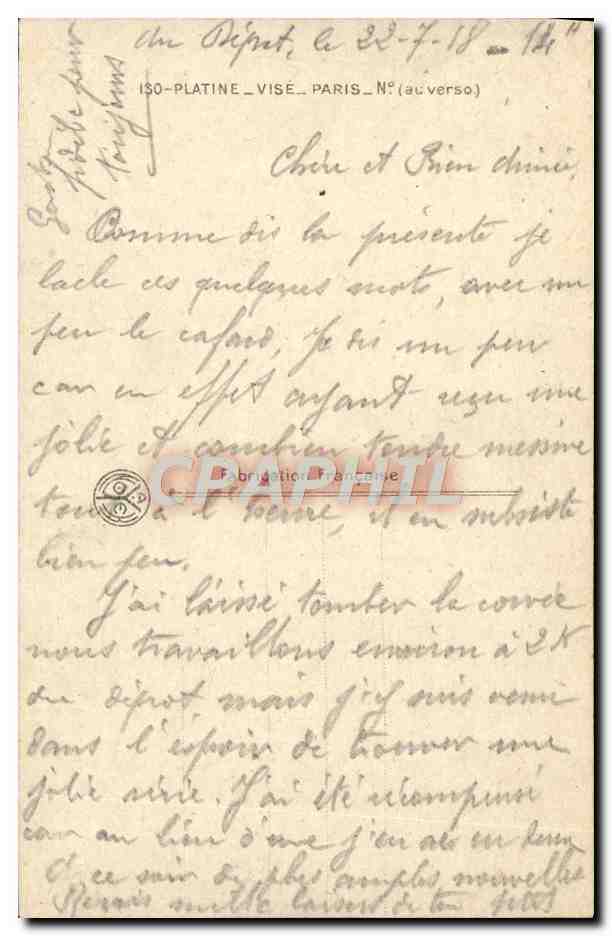 du Dépot, le 22-7-18 - 14 H
ISO-PLATINE_VISÉ_PARIS_Nº (au verso.)
Gaston
fidèle pour
toujours
Chère et Bien Aimée,
Comme dis la présente je
lacle ces quelques mots, avec un
peu le cafard, Je dis un peu
car en effet ayant reçu une
jolie et combien tendre messive
Fabrication Française
CPAPHIL
tout à l'heure, il en subsiste
bien peu.
J'ai laissé tomber la corvée
nous travaillons environ à 2 K
du dépot mais j'y suis venu
dans l'espoir de trouver une
jolie série. J'ai été récompensé
car au lieu d'une j'en ai eu deux
A ce soir de plus amples nouvelles
Recois mille baisers de ton petit